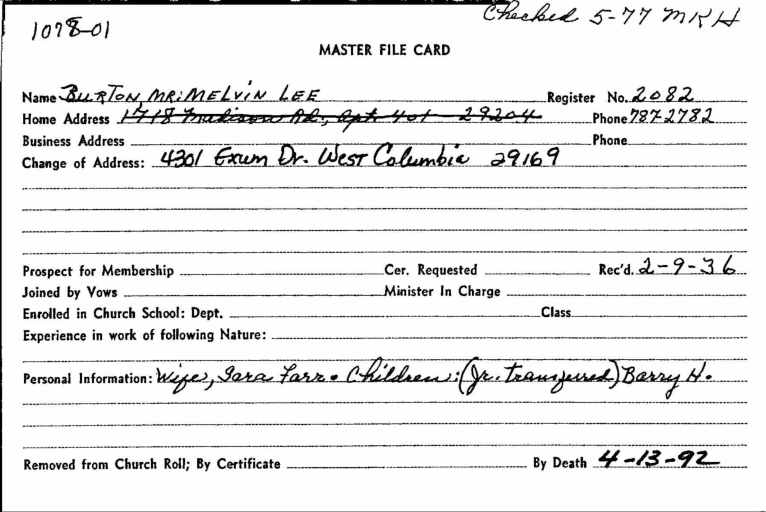 Checked 5-77 MKH
1078-01
MASTER FILE CARD
Name BURTON, MR. MELVIN LEE Register No. 2082
Home Address 1718 Madison Rd., Apt. 401 - 29204 Phone 787-2782
Business Address Phone
Change of Address: 4301 Exum Dr. West Columbia 29169
Prospect for Membership Cer. Requested Rec'd. 2-9-36
Joined by Vows Minister In Charge
Enrolled in Church School: Dept. Class
Experience in work of following Nature:
Personal Information: Wife, Sara Farr. Children: (Jr. transferred) Barry H.
Removed from Church Roll; By Certificate By Death 4-13-92